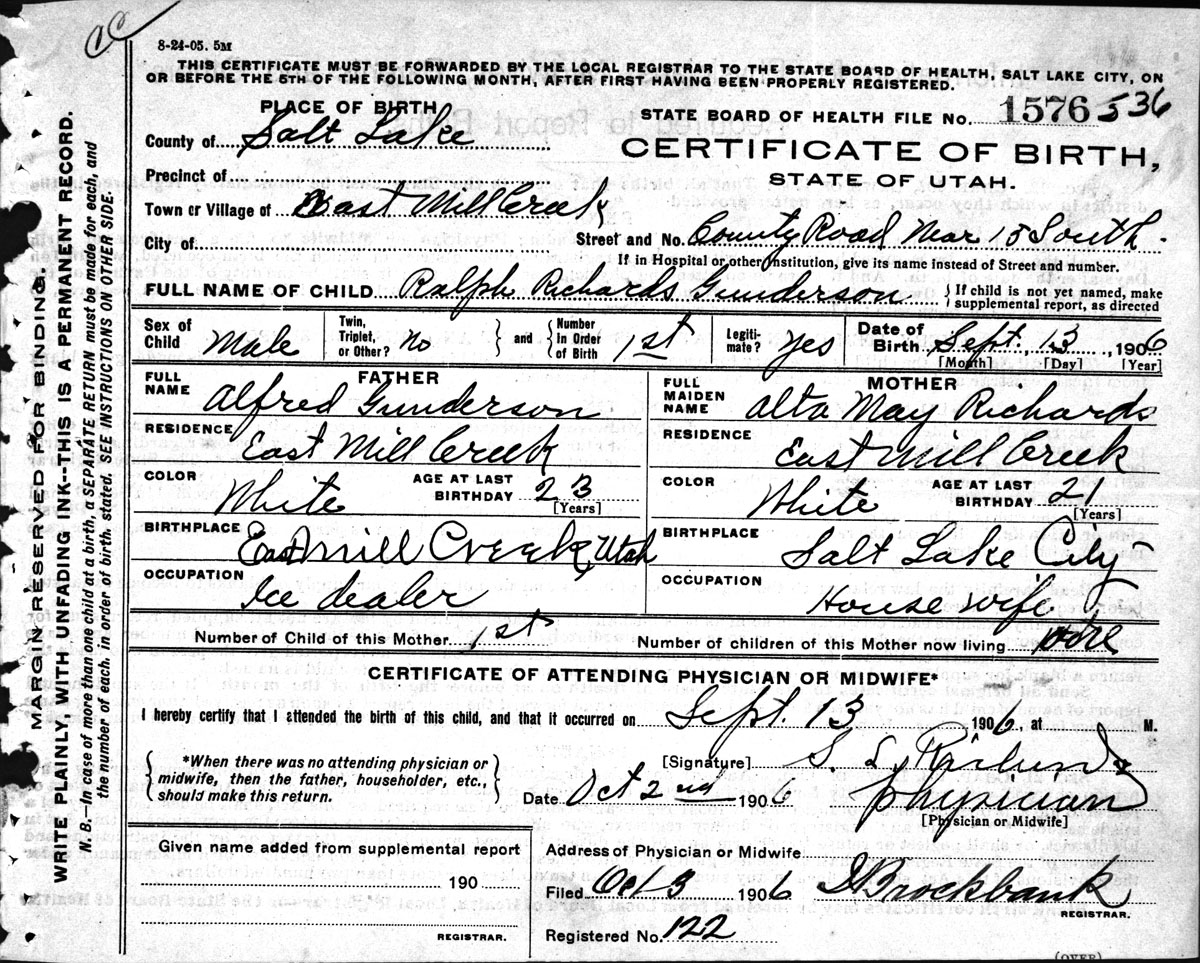 CC
8-24-05. 5M
THIS CERTIFICATE MUST BE FORWARDED BY THE LOCAL REGISTRAR TO THE STATE BOARD OF HEALTH, SALT LAKE CITY, ON
OR BEFORE THE 5TH OF THE FOLLOWING MONTH, AFTER FIRST HAVING BEEN PROPERLY REGISTERED.
PLACE OF BIRTH
STATE BOARD OF HEALTH FILE No. 1576 536
County of Salt Lake
CERTIFICATE OF BIRTH,
STATE OF UTAH.
Precinct of
Town or Village of East Mill Creek
City of
Street and No. County Road Near 15 South.
If in Hospital or other Institution, give its name instead of Street and number.
FULL NAME OF CHILD Ralph Richards Gunderson { If child is not yet named, make
supplemental report, as directed
Sex of Child Male Twin, Triplet, or Other? No } and { Number in Order of Birth 1st Legiti-mate? Yes Date of Birth Sept. 13, 1906
[Month] [Day] [Year]
FATHER MOTHER
FULL NAME Alfred Gunderson FULL MAIDEN NAME Alta May Richards
RESIDENCE East Mill Creek RESIDENCE East Mill Creek
COLOR White AGE AT LAST BIRTHDAY 23 [Years] COLOR White AGE AT LAST BIRTHDAY 21 [Years]
BIRTHPLACE East Mill Creek, Utah BIRTHPLACE Salt Lake City
OCCUPATION Ice dealer OCCUPATION House wife
Number of Child of this Mother 1st Number of children of this Mother now living
CERTIFICATE OF ATTENDING PHYSICIAN OR MIDWIFE*
I hereby certify that I attended the birth of this child, and that it occurred on Sept. 13 1906, at M.
{ *When there was no attending physician or
midwife, then the father, householder, etc.,
should make this return. }
[Signature] S. L. Richards
Date Oct 2nd 1906 Physician
[Physician or Midwife]
Given name added from supplemental report
190
REGISTRAR.
Address of Physician or Midwife
Filed Oct 3 1906 D Brockbank
REGISTRAR.
Registered No. 122
(OVER)
MARGIN RESERVED FOR BINDING.
WRITE PLAINLY, WITH UNFADING INK--THIS IS A PERMANENT RECORD.
N. B.—In case of more than one child at a birth, a SEPARATE RETURN must be made for each, and
the number of each, in order of birth, stated. SEE INSTRUCTIONS ON OTHER SIDE.